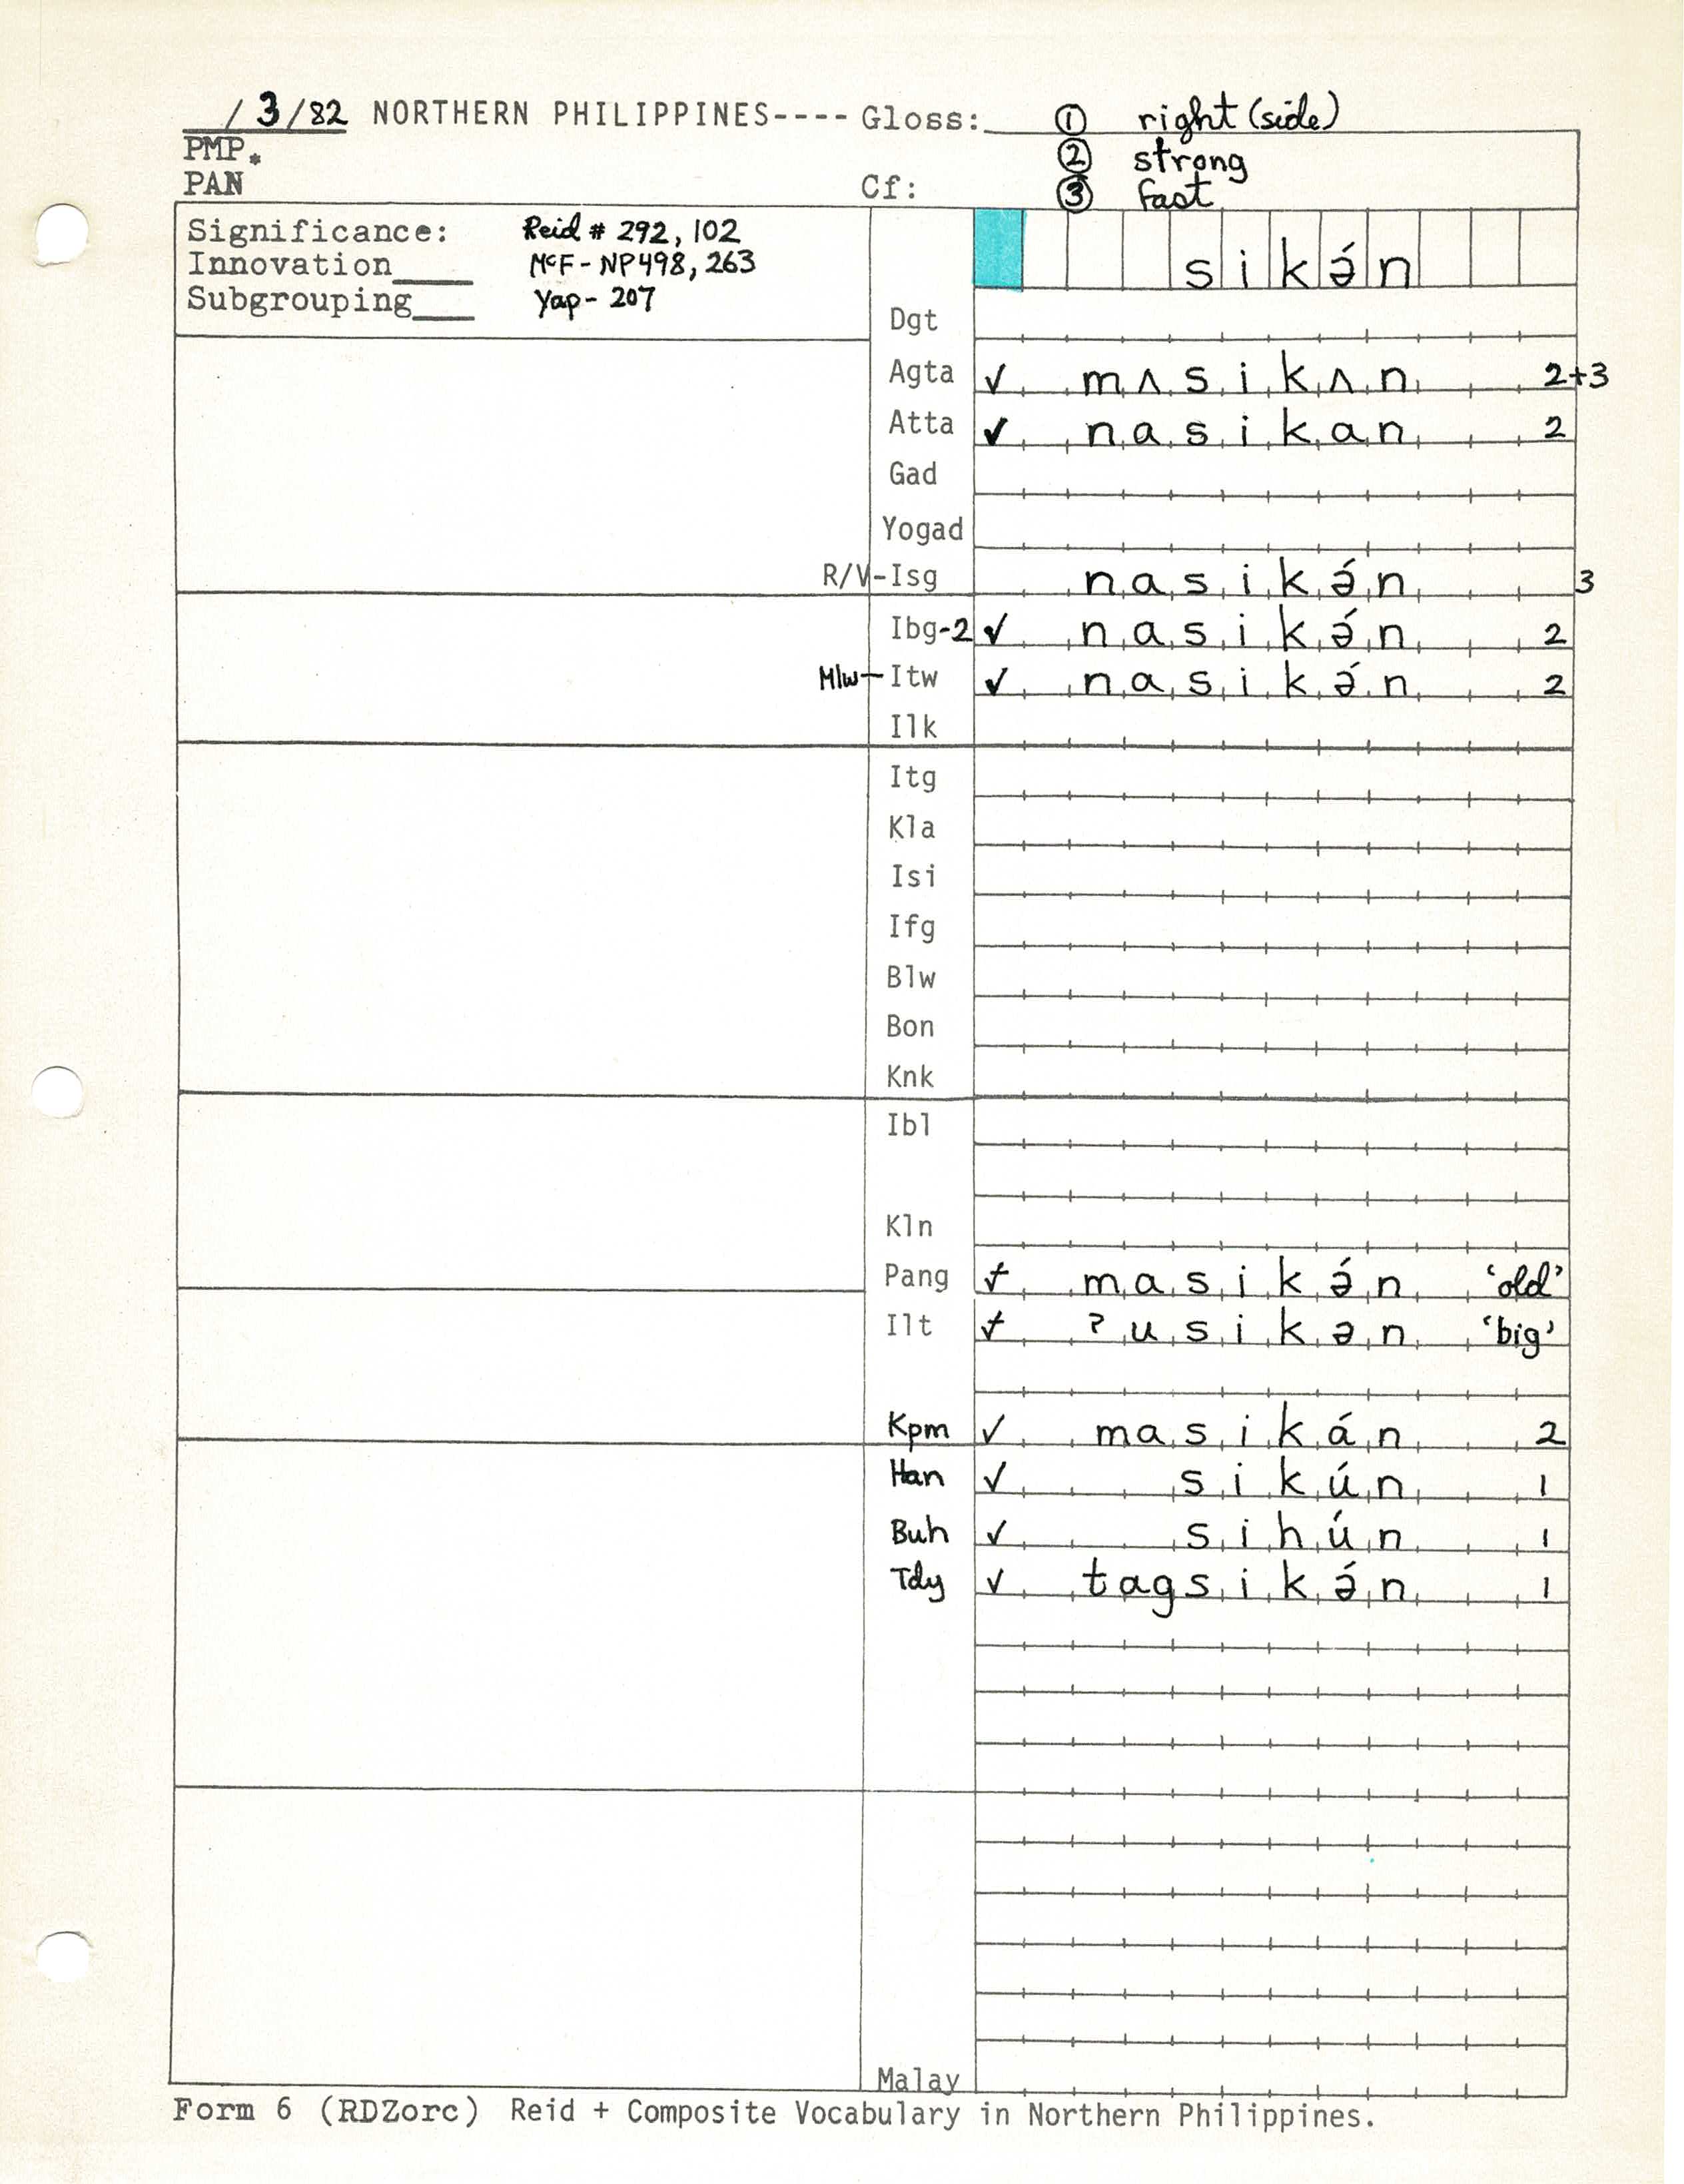 / 3/82 NORTHERN PHILIPPINES---- Gloss: ① right (side)
PMP. ② strong
PAN Cf: ③ fast
Significance: Reid # 292, 102
Innovation____ McF - NP498, 263
Subgrouping___ Yap - 207
sikə́n
Dgt
Agta ✓ mʌsikʌn 2+3
Atta ✓ nasikan 2
Gad
Yogad
R/V-Isg nasikə́n 3
Ibg-2 ✓ nasikə́n 2
Mlw-Itw ✓ nasikə́n 2
Ilk
Itg
Kla
Isi
Ifg
Blw
Bon
Knk
Ibl
Kln
Pang ✓ masikə́n ‘old’
Ilt ✓ ʔusikən ‘big’
Kpm ✓ masikán 2
Han ✓ sikún 1
Buh ✓ sihún 1
Tdy ✓ tagsikə́n 1
Malay
Form 6 (RDZorc) Reid + Composite Vocabulary in Northern Philippines.